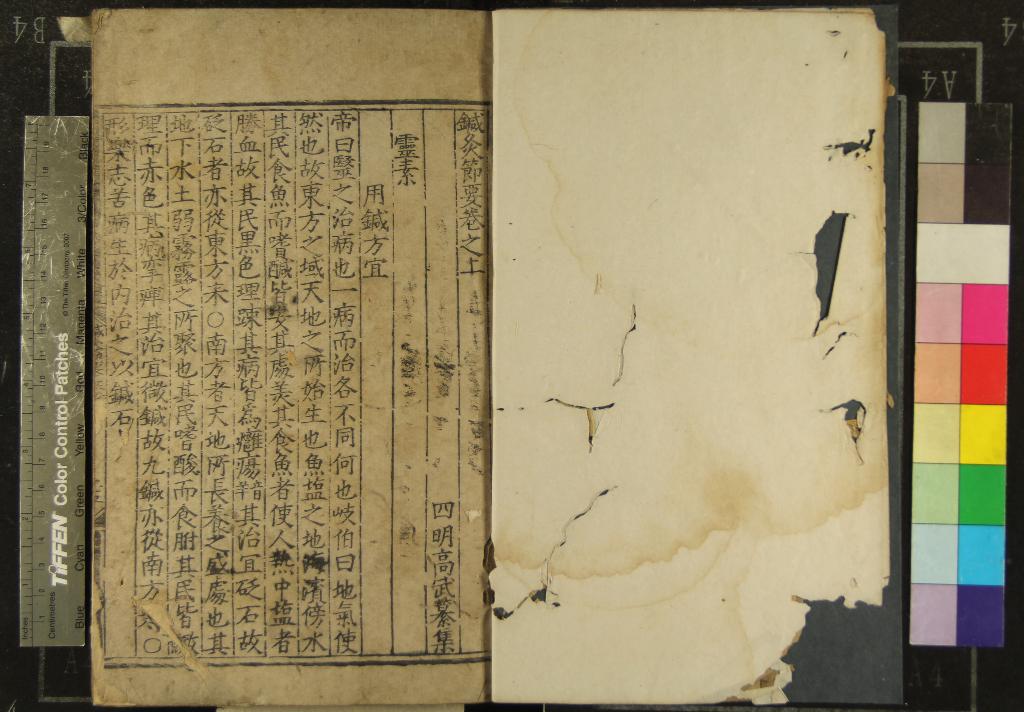 鍼灸節要卷之上
四明高武纂集
靈素
用鍼方宜
帝曰醫之治病也一病而治各不同何也岐伯曰地氣使
然也故東方之域天地之所始生也魚塩之地海濱傍水
其民食魚而嗜鹹皆安其處美其食魚者使人熱中塩者
勝血故其民黑色理踈其病皆為癰瘍其治宜砭石故
砭石者亦從東方来○南方者天地所長養之盛處也其
地下水土弱霧露之所聚也其民嗜酸而食胕其民皆緻
理而赤色其病攣痺其治宜微鍼故九鍼亦從南方来○
形樂志苦病生於內治之以鍼石
TIFFEN Color Control Patches
© The Tiffen Company, 2007
Inches
Centimetres
Blue
Cyan
Green
Yellow
Red
Magenta
White
3/Color
Black
B4
A4
A4